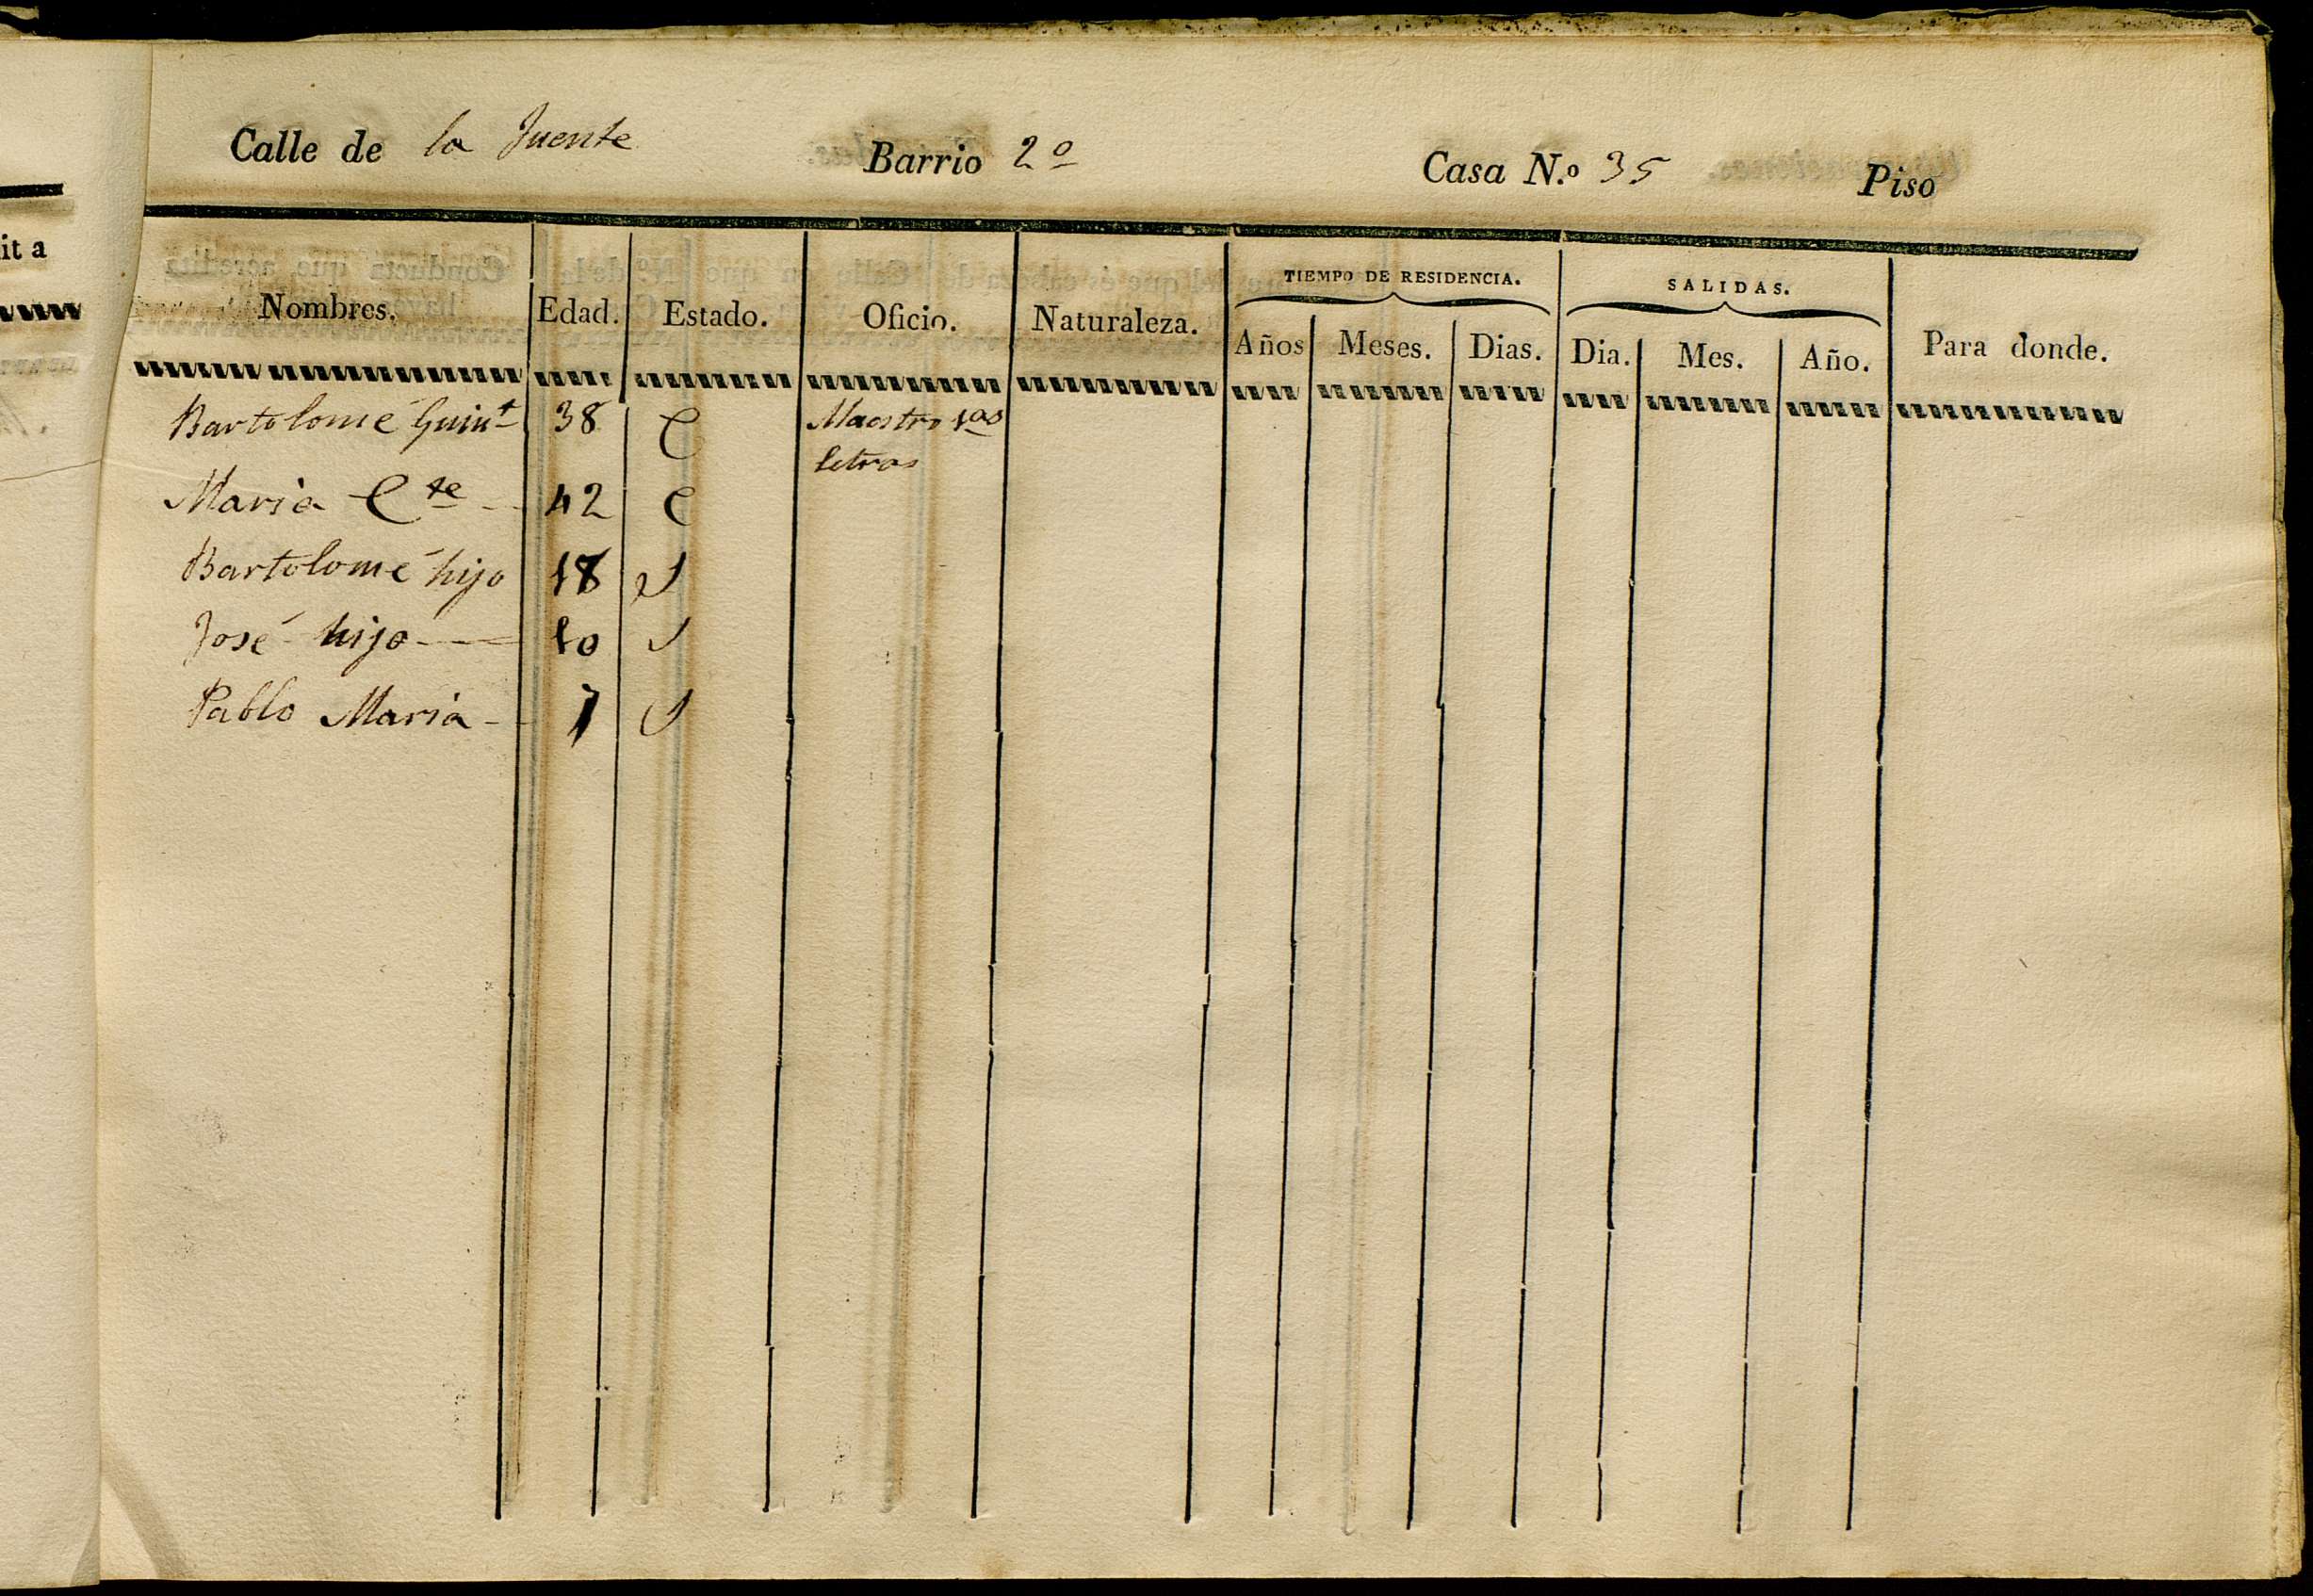 Calle de la Fuente Barrio 2º Casa N.º 35 Piso
it a
TIEMPO DE RESIDENCIA. SALIDAS.
Nombres. Edad. Estado. Oficio. Naturaleza. Años Meses. Dias. Dia. Mes. Año. Para donde.
Bartolomé 38 C Maestro 1as
letras
Maria Cte 42 C
Bartolomé hijo 18 S
José hijo 10 S
Pablo Maria 7 S